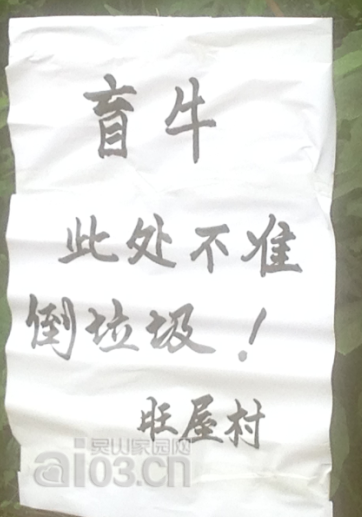 盲牛
此处不准
倒垃圾！
旺屋村
灵山家园网
ai03.cn